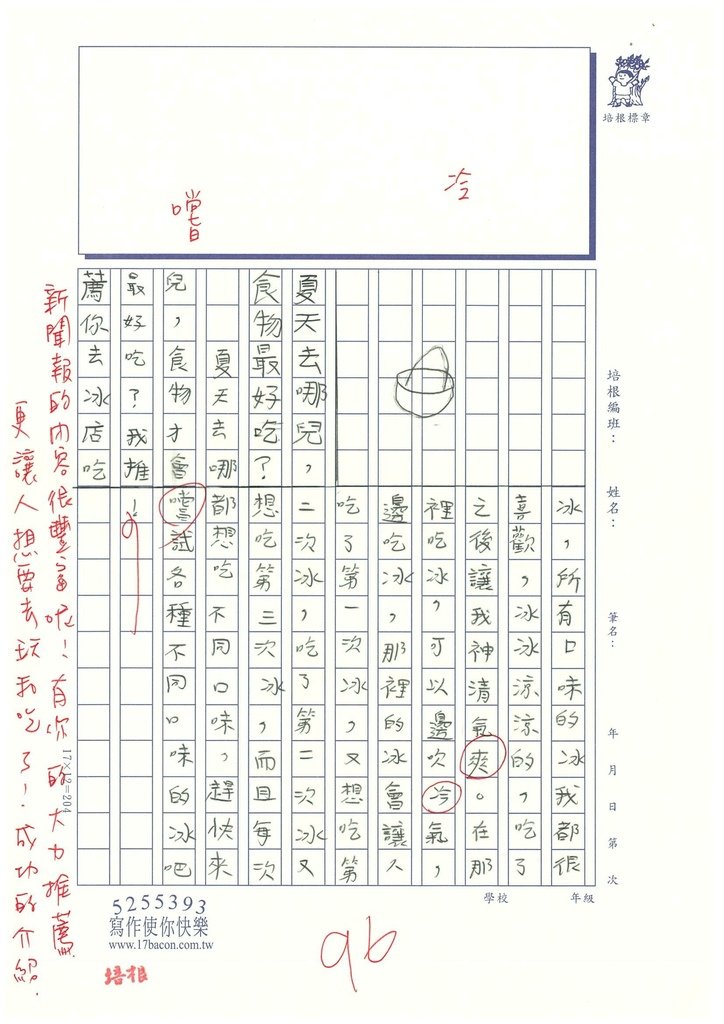 培根標章
冷
嚐
培根編班：
姓名：
筆名：
年 月 日 第 次
學校
年級
夏天去哪兒，
食物最好吃？
夏天去哪
兒，食物才會
最好吃？我推
薦你去冰店吃
冰，所有口味的冰我都很
喜歡，冰冰涼涼的，吃了
之後讓我神清氣爽。在那
裡吃冰，可以邊吹冷氣，
邊吃冰，那裡的冰會讓人，
吃了第一次冰，又想吃第
二次冰，吃了第二次冰又
想吃第三次冰，而且每次
都想吃不同口味，趕快來
嚐試各種不同口味的冰吧
！
17×12=204
新聞報的內容很豐富呢！有你的大力推薦
更讓人想要去玩和吃了！成功的介紹
5255393
寫作使你快樂
www.17bacon.com.tw
培根
96